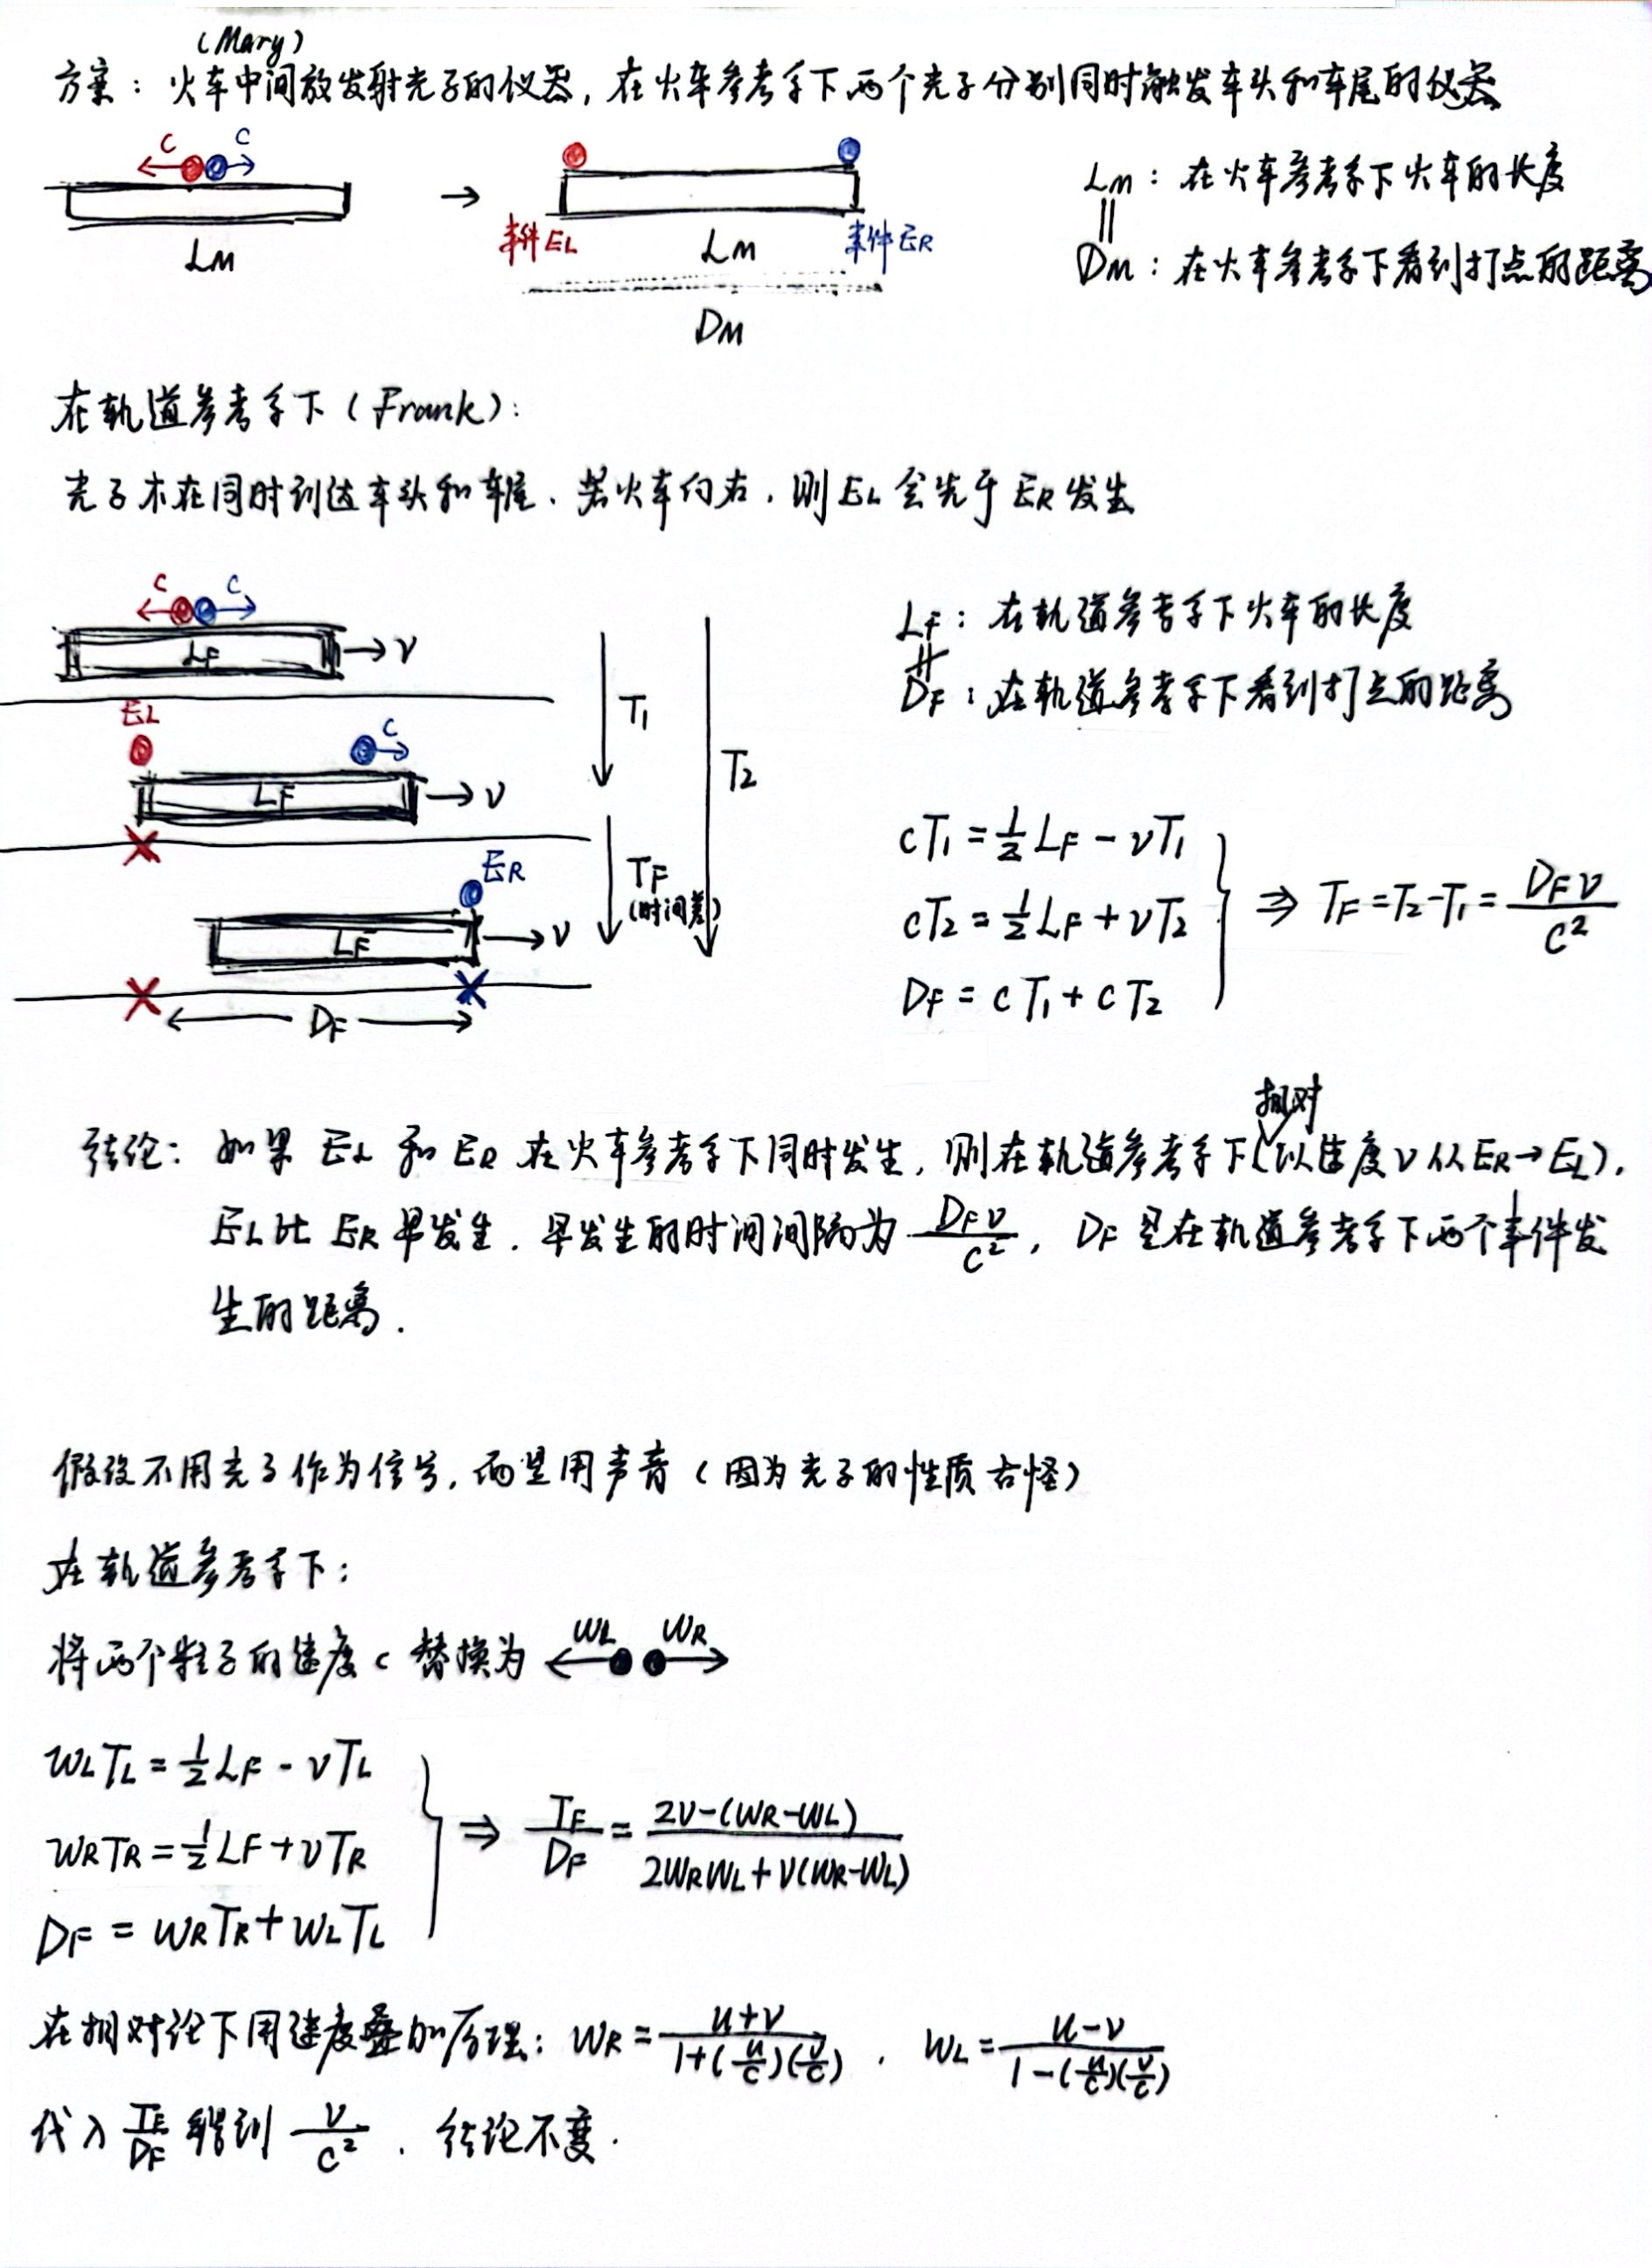 (Mary)
方案：火车中间放发射光子的仪器，在火车参考系下两个光子分别同时触发车头和车尾的仪器
C C
LM
→
事件EL LM 事件ER
DM
LM：在火车参考系下火车的长度
||
DM：在火车参考系下看到打点的距离
在轨道参考系下（Frank）：
光子不在同时到达车头和车尾．若火车向右，则EL会先于ER发生
C C
LF → V
EL
C
LF → V
ER
LF → V
DF
T1
T2
TF
(时间差)
LF：在轨道参考系下火车的长度
∦
DF：在轨道参考系下看到打点的距离
cT1 = 1/2 LF - vT1
cT2 = 1/2 LF + vT2
DF = cT1 + cT2
⇒ TF = T2-T1 = DFv/c²
相对
结论：如果 EL 和 ER 在火车参考系下同时发生，则在轨道参考系下(以速度v从ER→EL)，
EL比 ER 早发生．早发生的时间间隔为 DFv/c²，DF是在轨道参考系下两个事件发
生的距离．
假设不用光子作为信号，而是用声音（因为光子的性质古怪）
在轨道参考系下：
将两个粒子的速度c 替换为 WL WR
WLTL = 1/2 LF - vTL
WRTR = 1/2 LF + vTR
DF = WRTR + WLTL
⇒ TF/DF = (2v-(WR-WL))/(2WRWL+v(WR-WL))
在相对论下用速度叠加原理：WR = (u+v)/(1+(u/c)(v/c))．WL = (u-v)/(1-(u/c)(v/c))
代入 TF/DF 得到 v/c²．结论不变．